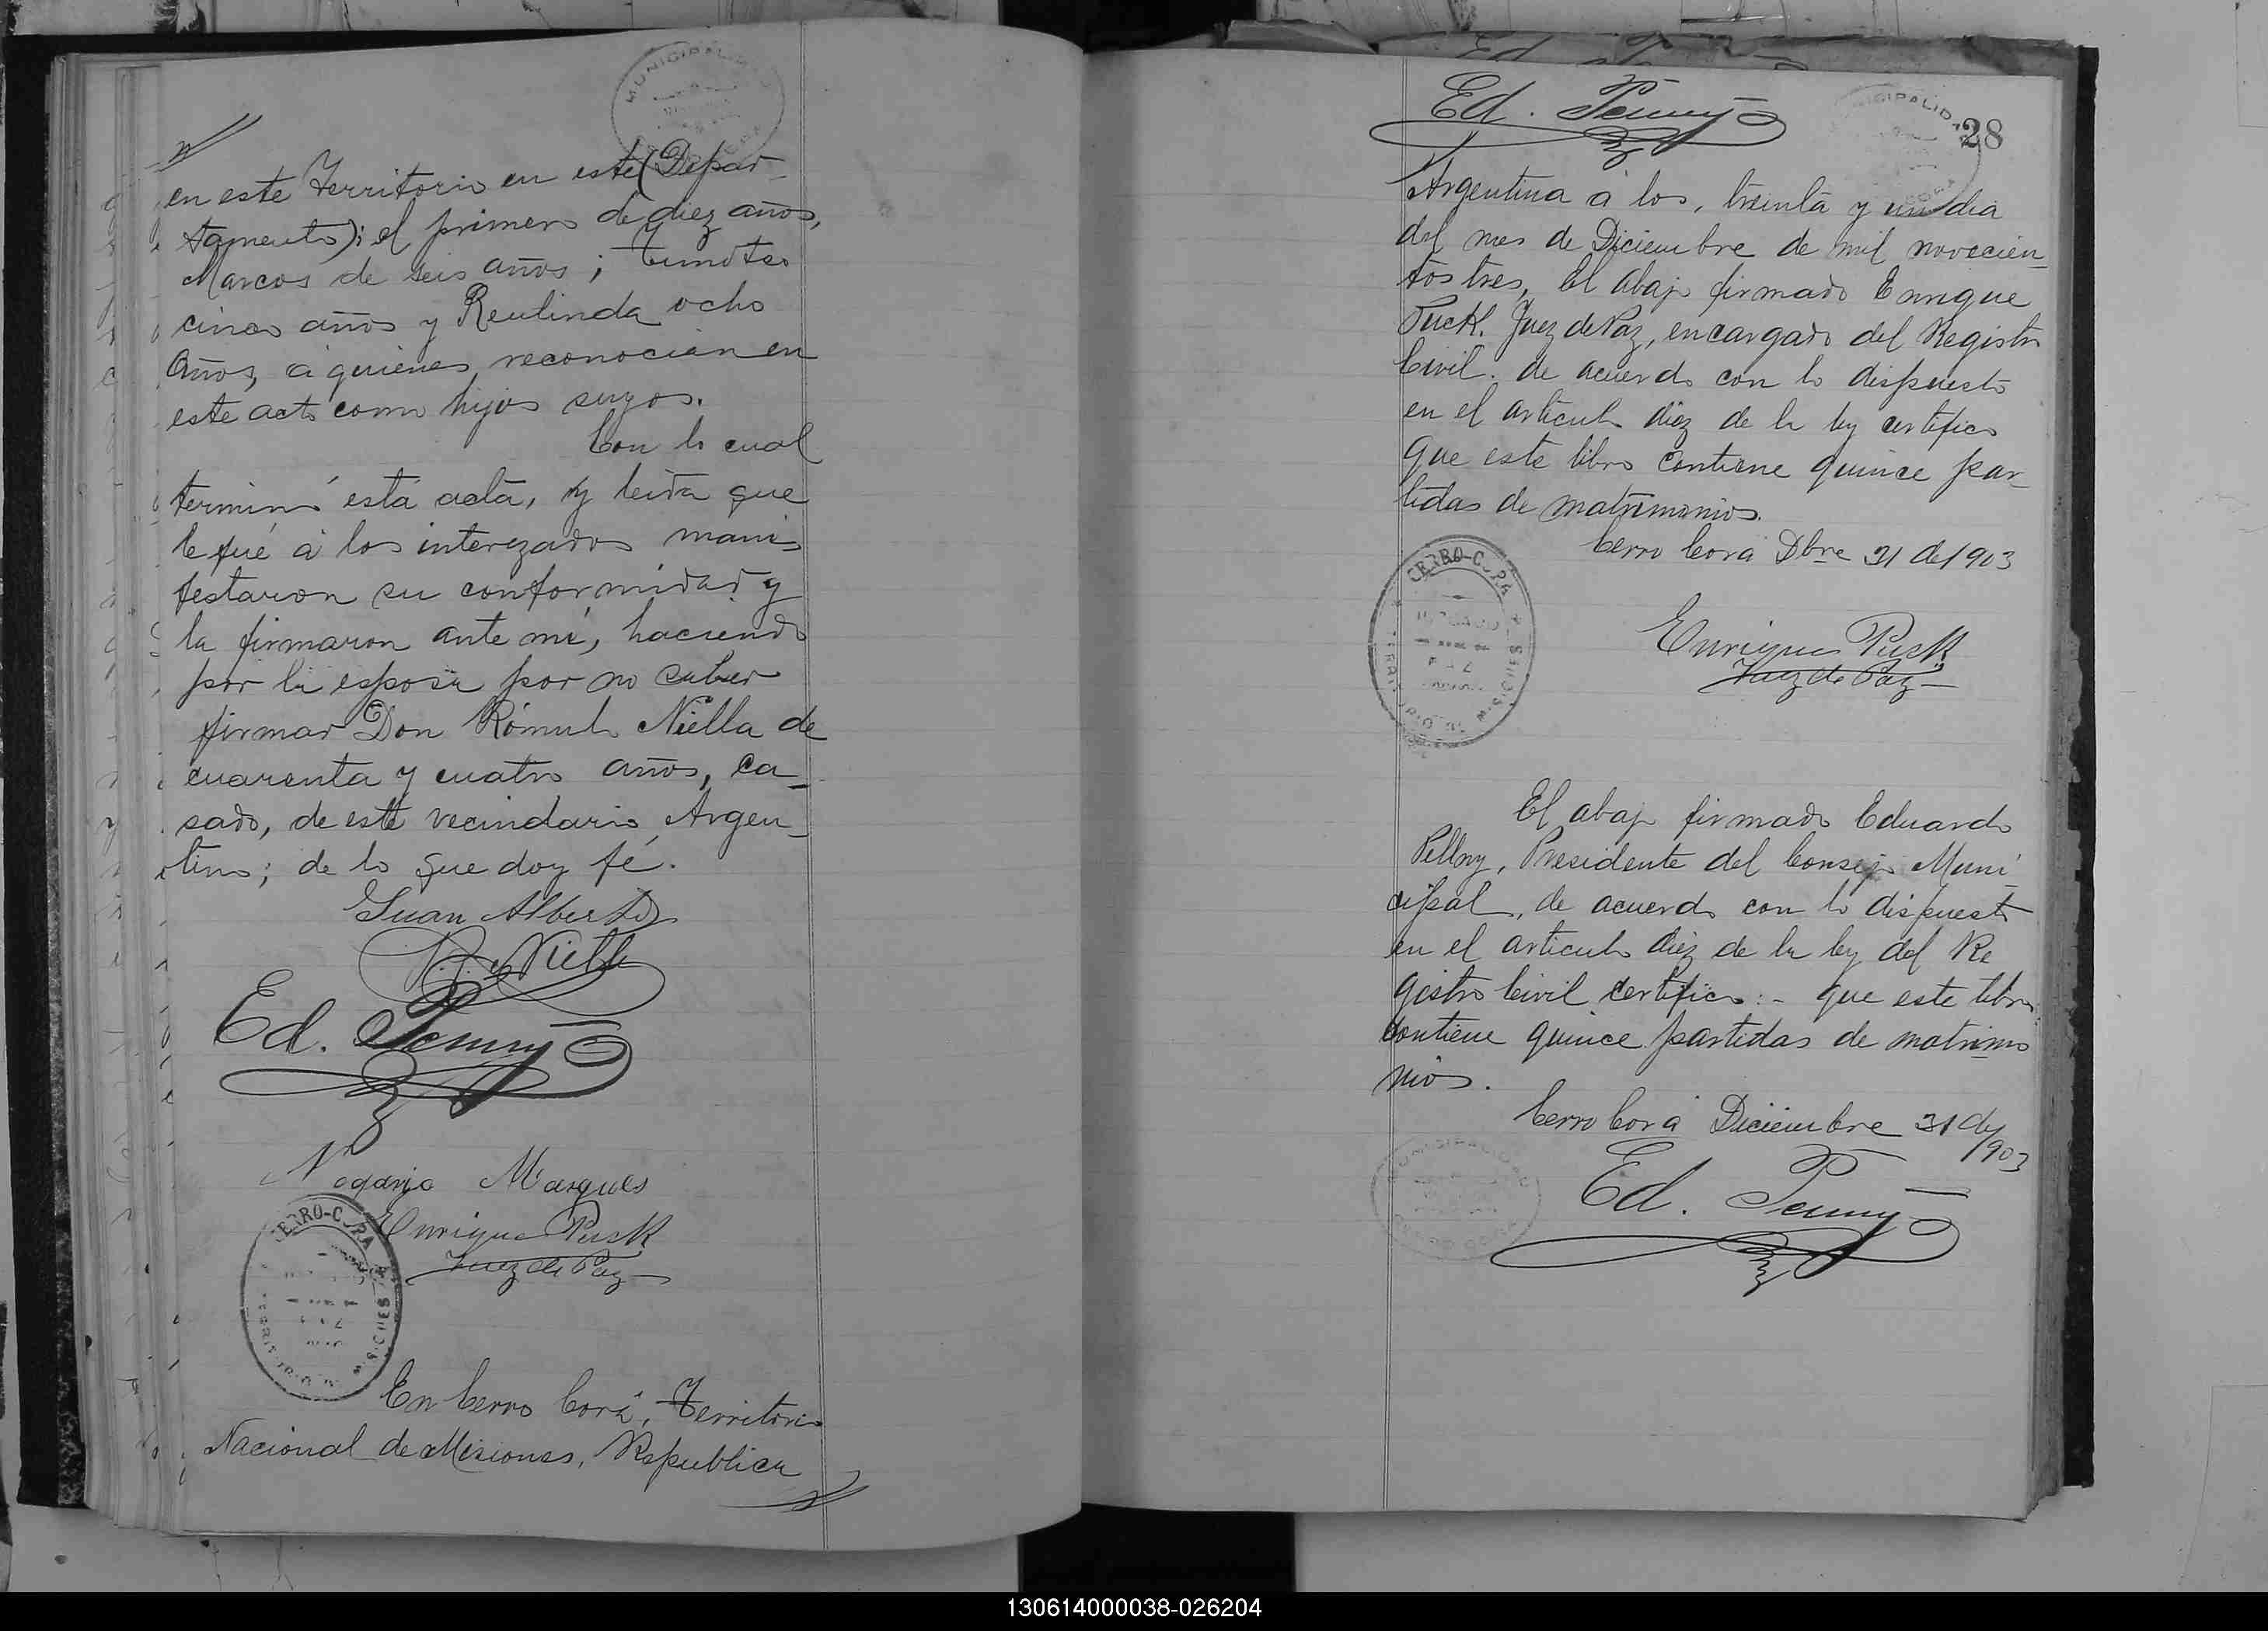 en este Territorio en este (Depar-
tamento); el primero de diez años,
Marcos de seis años; Timoteo
cinco años y Reulinda ocho
años, á quienes reconocian en
este acto como hijos suyos.
Con lo cual
terminó esta acta, y leida que
le fué á los interezados mani-
festaron su conformidad y
la firmaron ante mi, haciendo
por la esposa por no saber
firmar Don Rómulo Niella de
cuarenta y cuatro años, ca-
sado, de este vecindario, Argen-
tino; de lo que doy fé.
Juan Alberto
R. Niella
Ed. Penny
Marques
Enrique Puck
Juez de Paz
CERRO-CORA
MISIONES
En Cerro Corá, Territorio
Nacional de Misiones, Republica
MUNICIPALIDAD
Ed. Penny
28
Argentina á los, treinta y un dia
del mes de Diciembre de mil novecien-
tos tres, El abajo firmado Enrique
Puck. Juez de Paz, encargado del Registro
Civil. de acuerdo con lo dispuesto
en el articulo diez de la ley certifico
que este libro contiene quince par-
tidas de matrimonios.
Cerro Corá Dbre 31 de 1903
CERRO-CORA
MISIONES
Enrique Puck
Juez de Paz
El abajo firmado Eduardo
Pellny, Presidente del Consejo Muni-
cipal, de acuerdo con lo dispuesto
en el articulo diez de la ley del Re
gistro Civil certifico:- que este libro
contiene quince partidas de matrimo
nios.
Cerro Corá Diciembre 31 de
1903
Ed. Penny
130614000038-026204